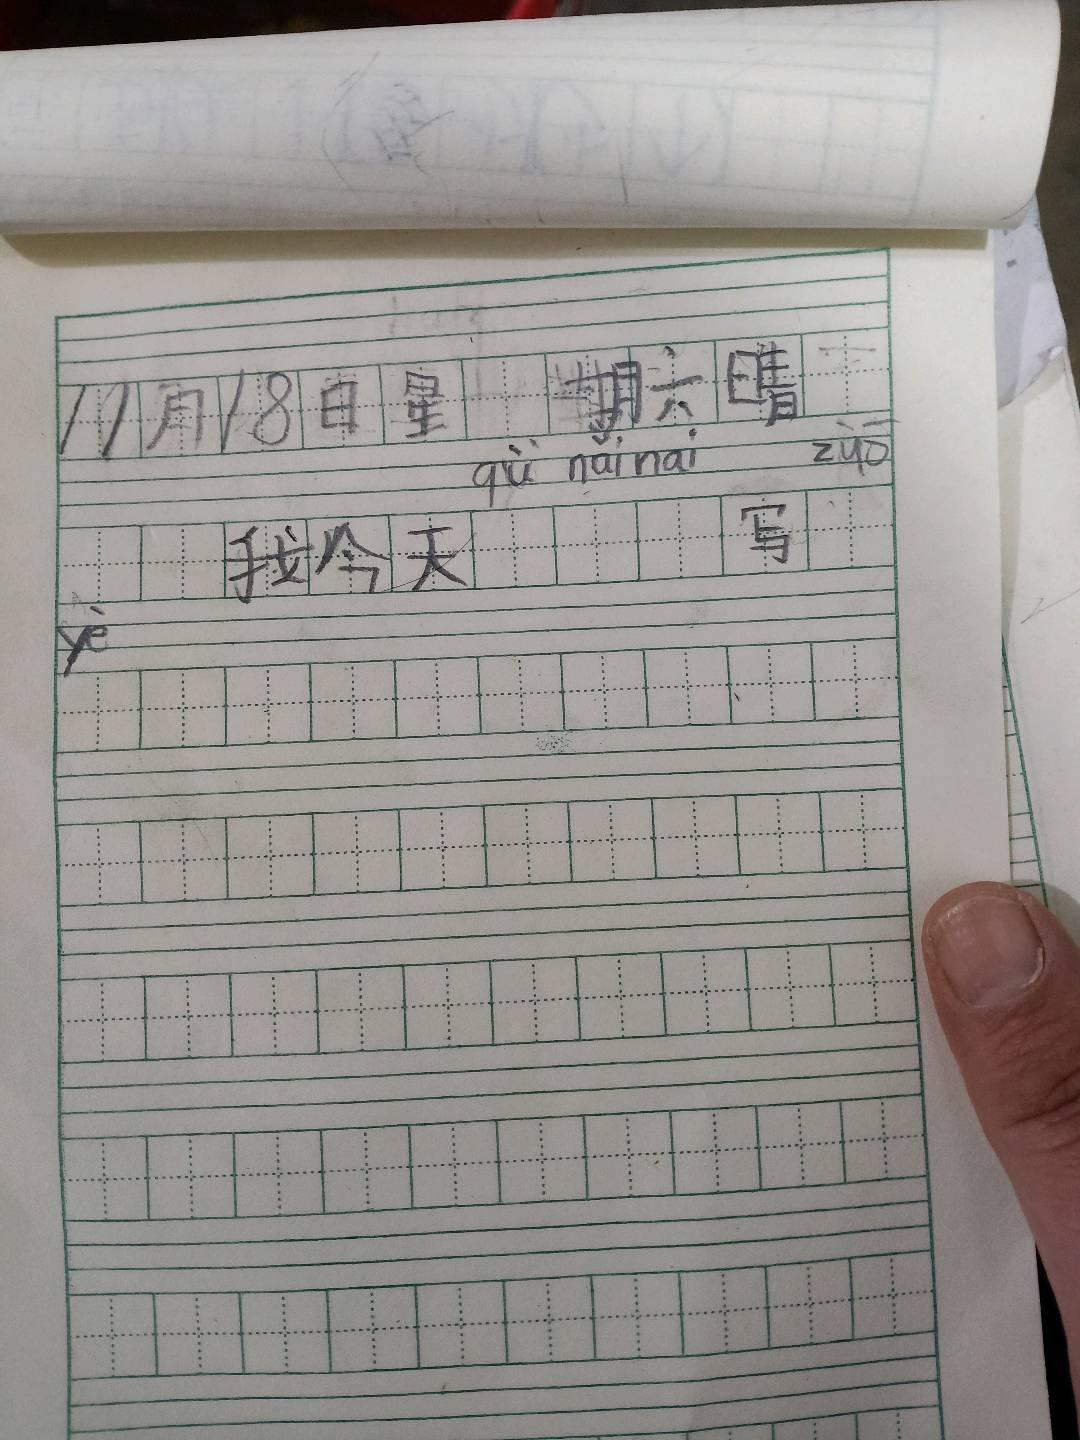 11月18日星期六晴
qù nǎi nai zùo
我今天写
yè